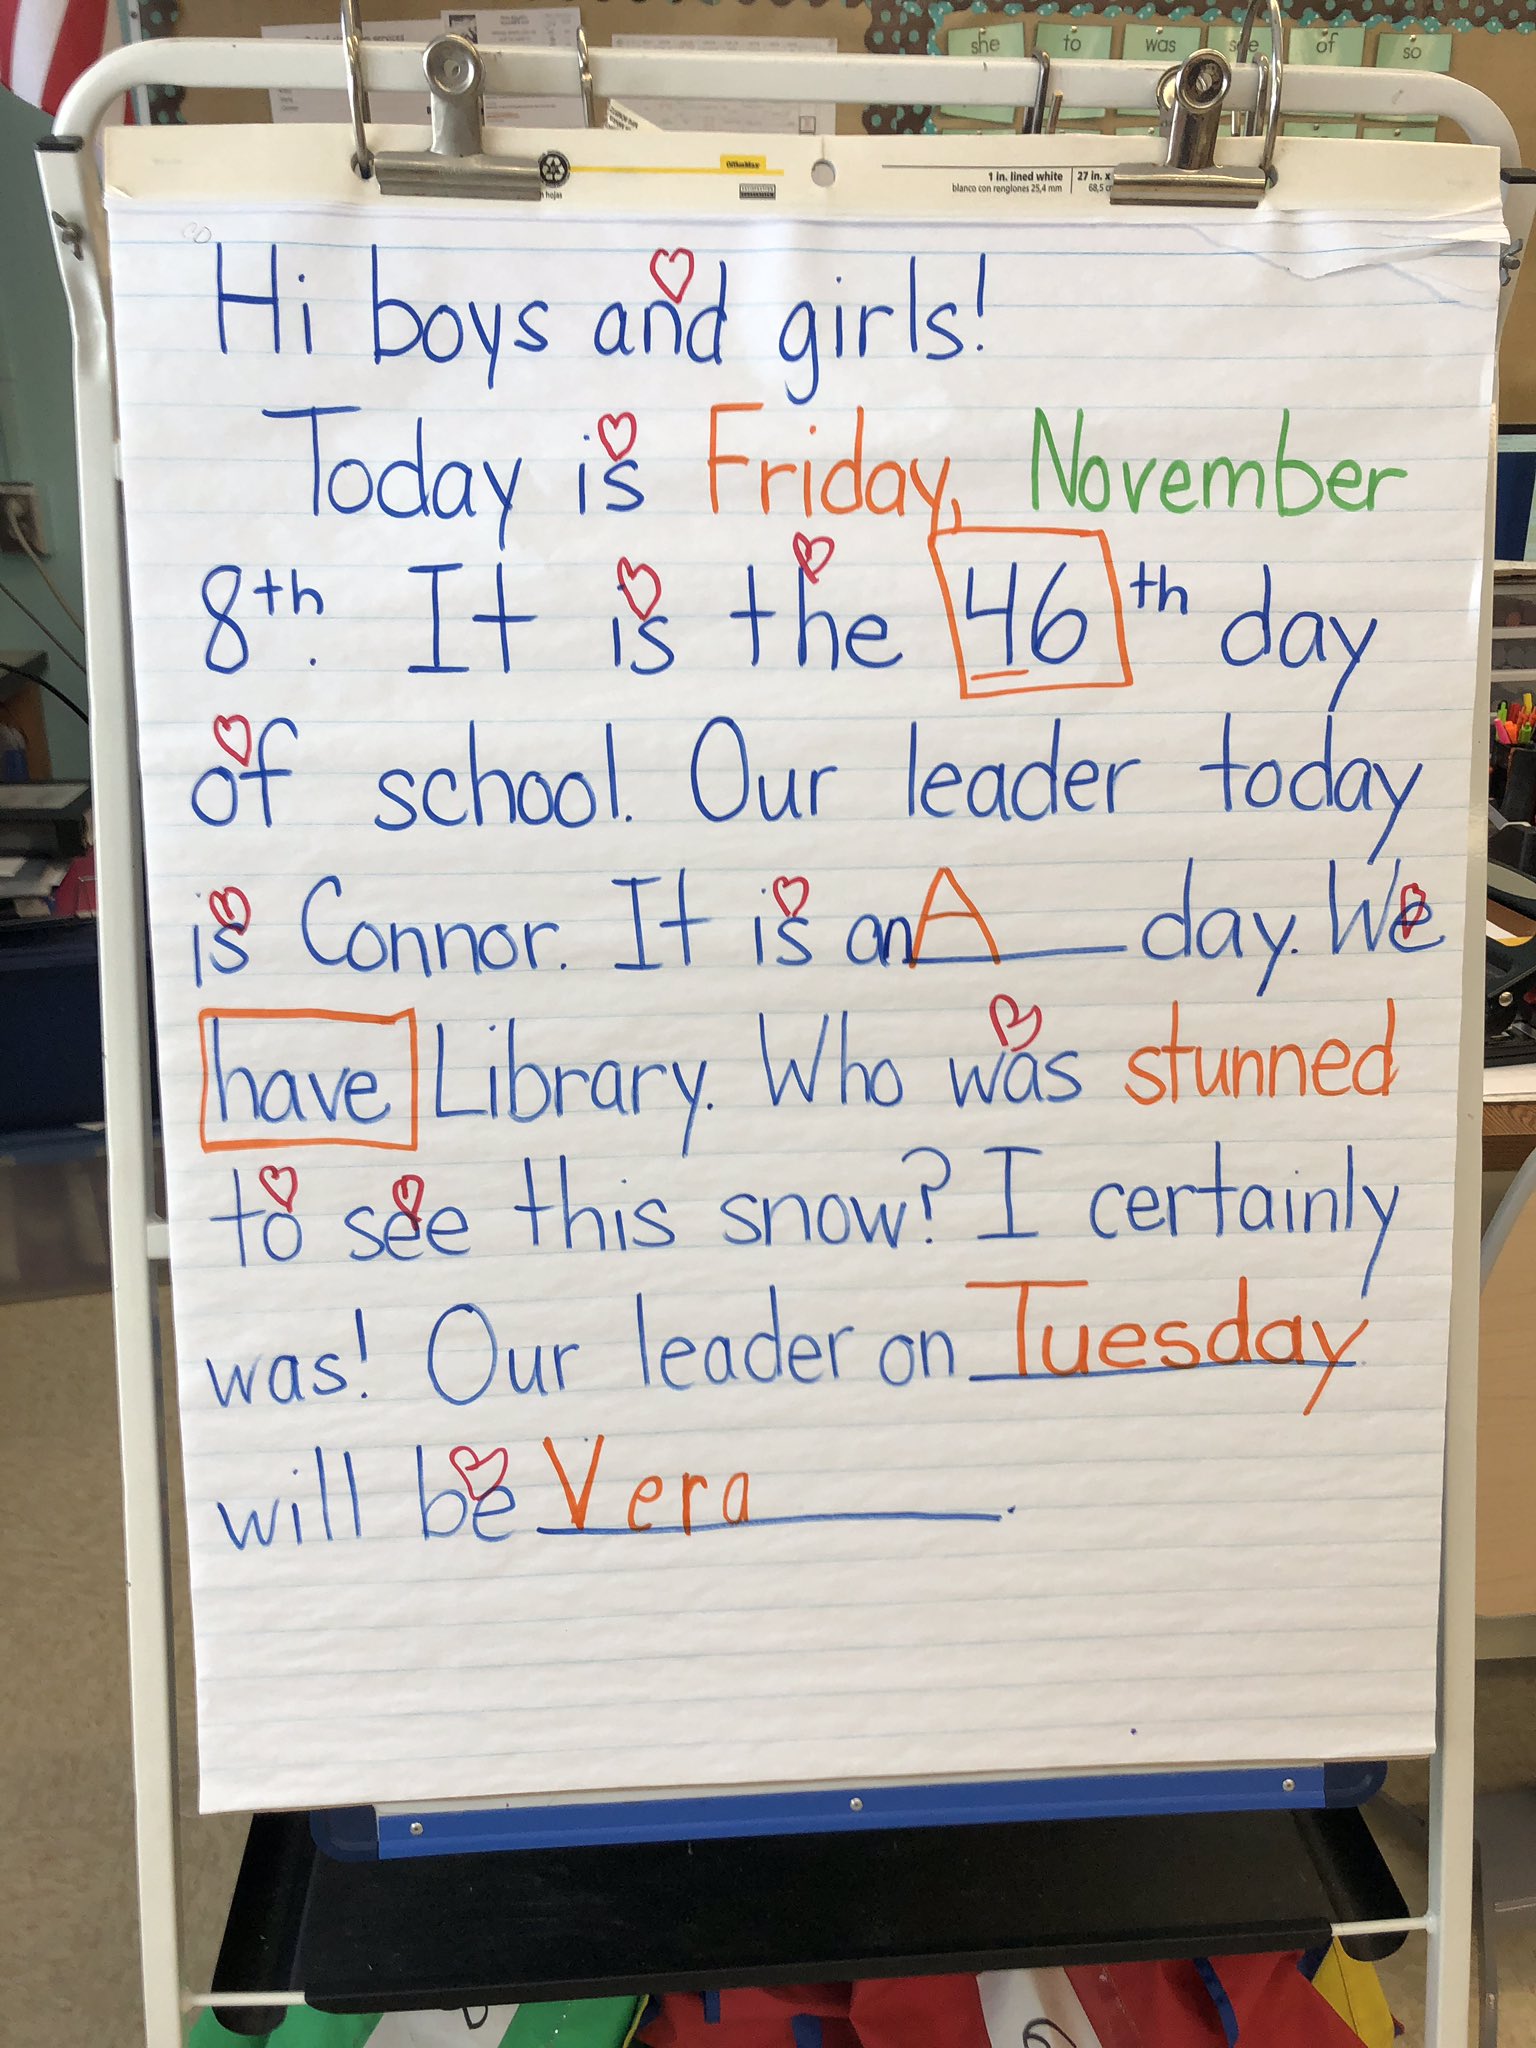 she to was see of so
OfficeMax
1 in. lined white 27 in. x
blanco con renglones 25,4 mm 68,5 c
hojas
Hi boys and girls!
Today is Friday, November
8th. It is the 46th day
of school. Our leader today
is Connor. It is an A day. We
have Library. Who was stunned
to see this snow? I certainly
was! Our leader on Tuesday
will be Vera.